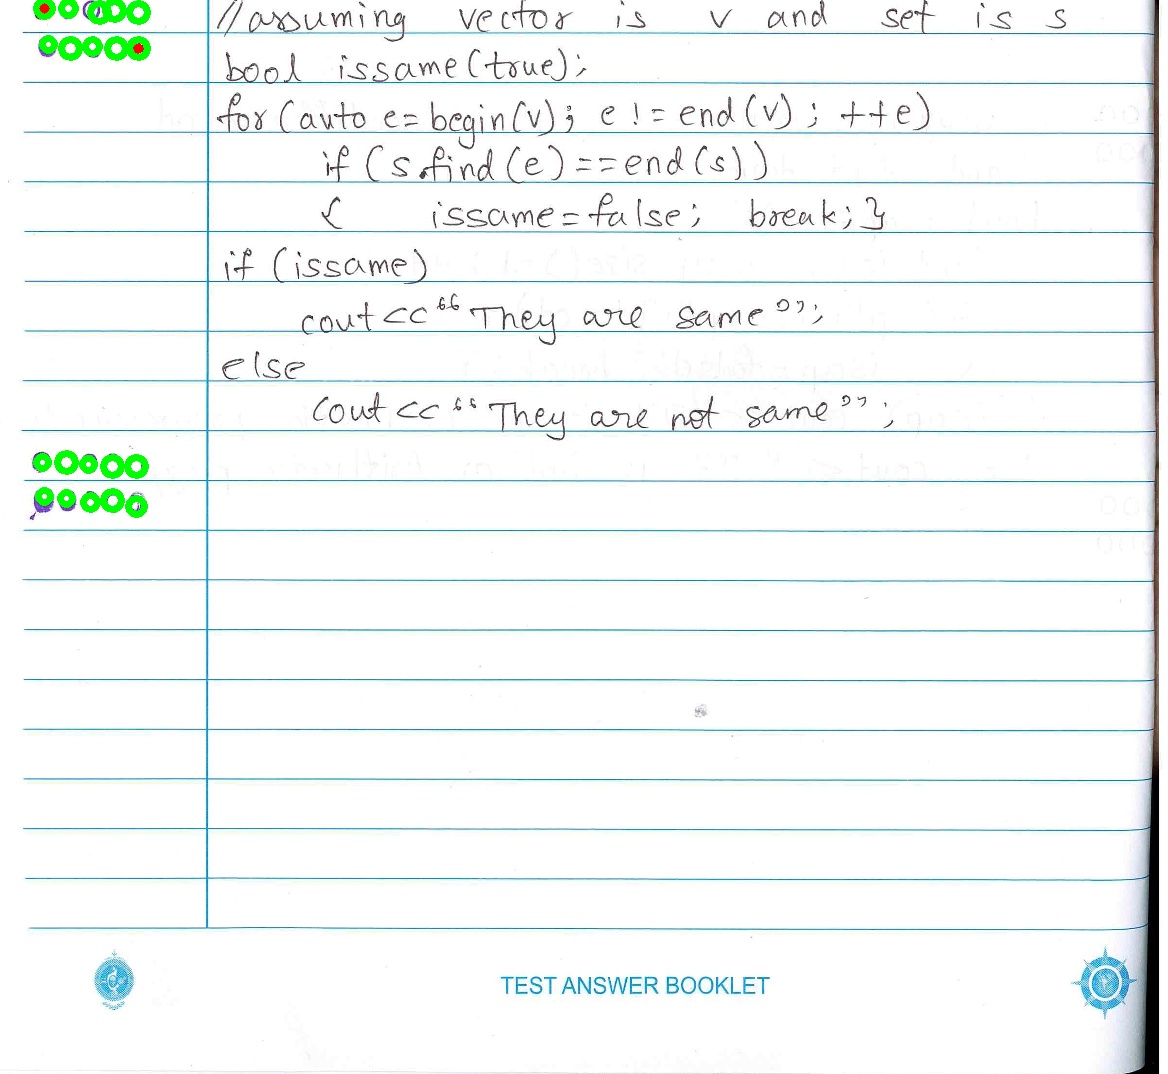 //assuming vector is v and set is s
bool issame(true);
for (auto e= begin(v); e != end(v) ; ++e)
if (s.find(e) ==end(s))
{ issame=false; break;}
if (issame)
cout <<"They are same";
else
cout <<"They are not same";
TEST ANSWER BOOKLET